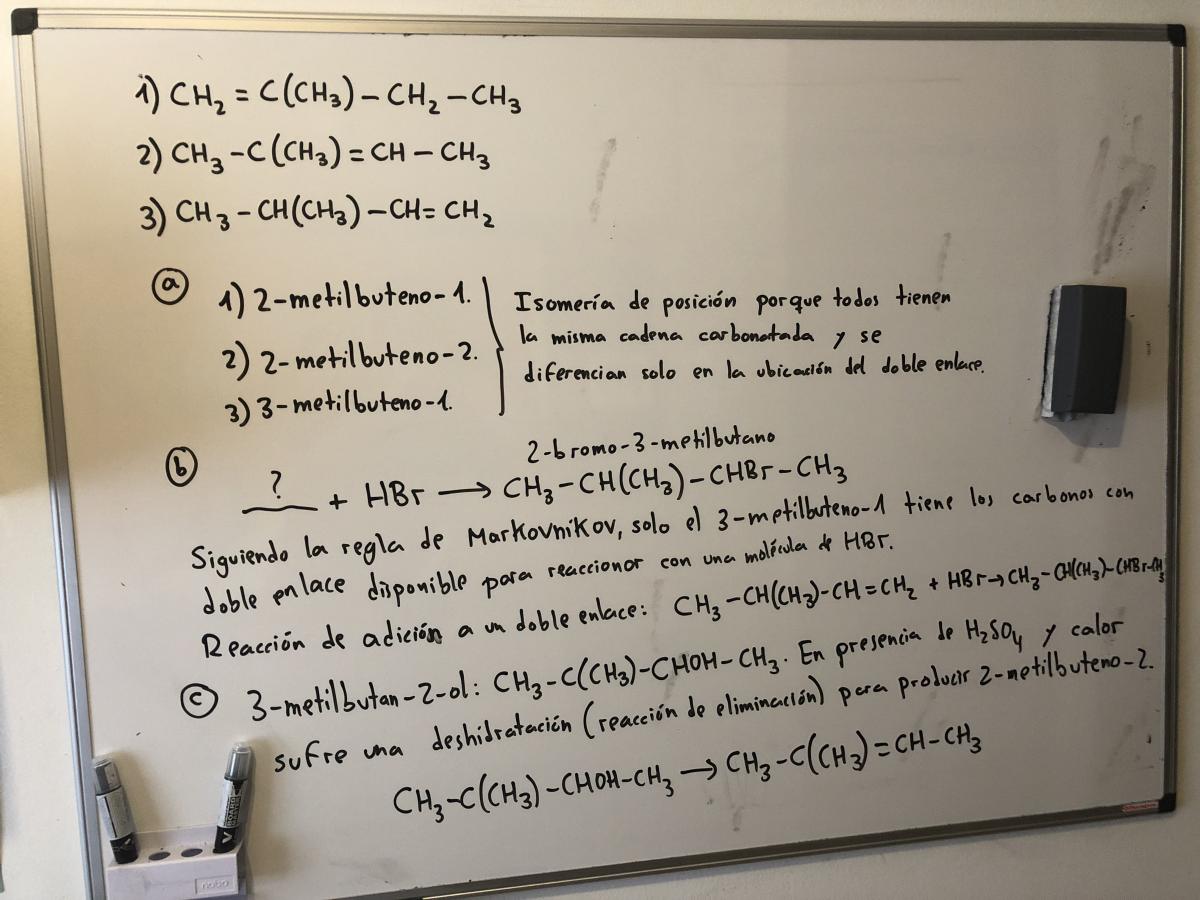 1) CH₂ = C(CH₃) – CH₂ – CH₃
2) CH₃ – C(CH₃) = CH – CH₃
3) CH₃ – CH(CH₃) – CH = CH₂
ⓐ 1) 2-metilbuteno-1.
2) 2-metilbuteno-2.
3) 3-metilbuteno-1.
Isomería de posición porque todos tienen
la misma cadena carbonatada y se
diferencian solo en la ubicación del doble enlace.
ⓑ 2-bromo-3-metilbutano
? + HBr ⟶ CH₃ – CH(CH₃) – CHBr – CH₃
Siguiendo la regla de Markovnikov, solo el 3-metilbuteno-1 tiene los carbonos con
doble enlace disponible para reaccionar con una molécula de HBr.
Reacción de adición a un doble enlace: CH₃ – CH(CH₃) – CH = CH₂ + HBr → CH₃ – CH(CH₃) – CHBr – CH₃
ⓒ 3-metilbutan-2-ol: CH₃ – C(CH₃) – CHOH – CH₃. En presencia de H₂SO₄ y calor
sufre una deshidratación (reacción de eliminación) para producir 2-metilbuteno-2.
CH₃ – C(CH₃) – CHOH – CH₃ → CH₃ – C(CH₃) = CH – CH₃
nobo